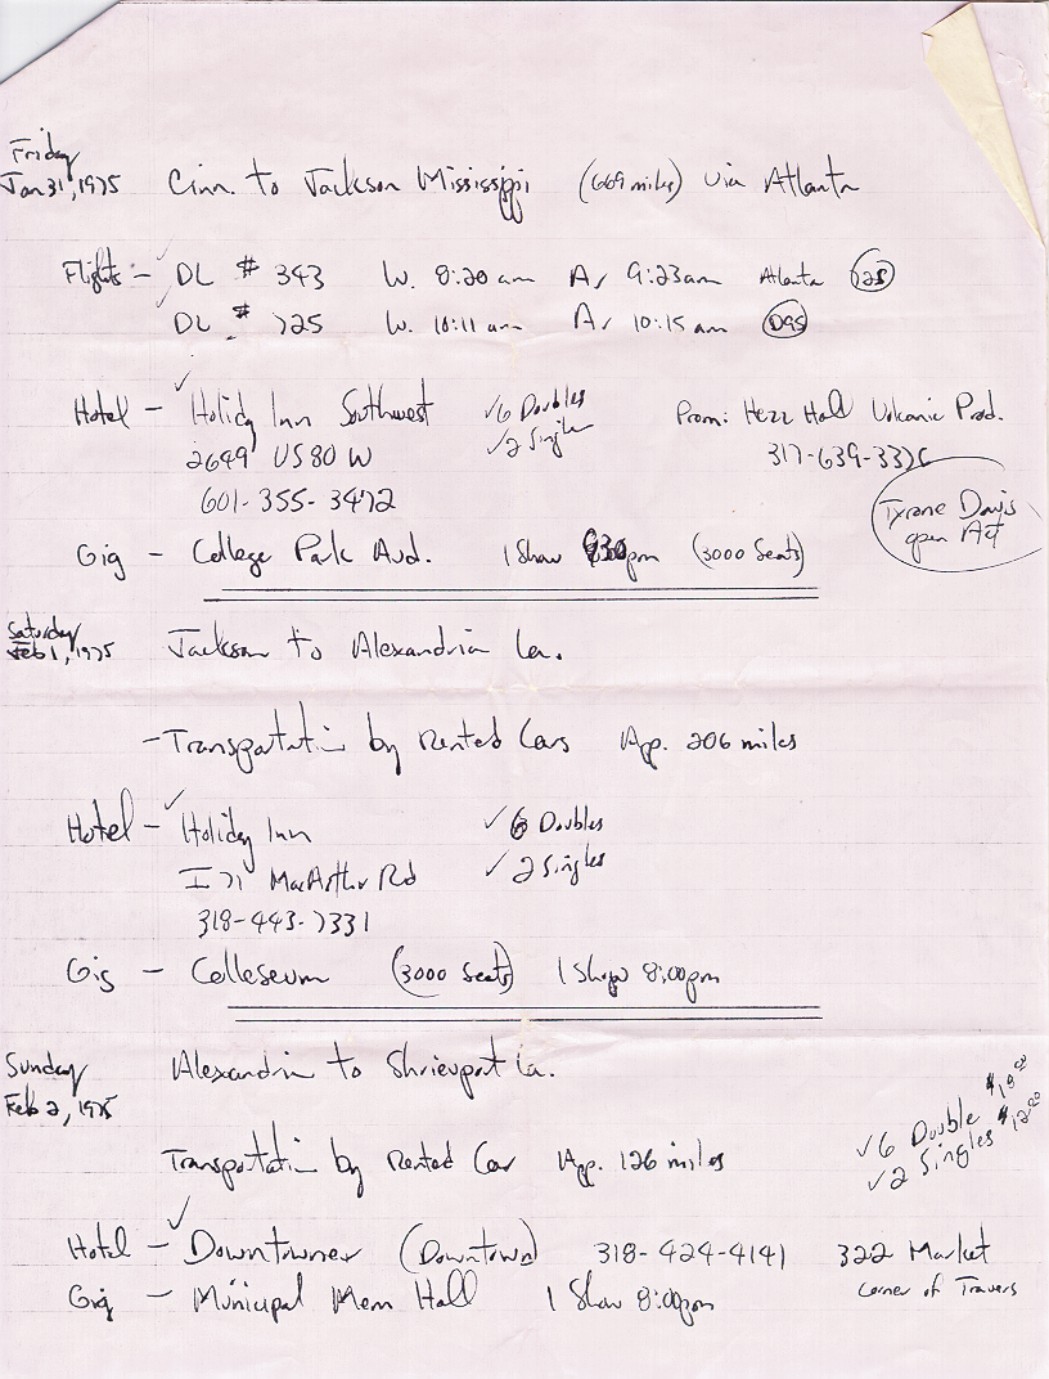 Friday
Jan 31, 1975 Cinn. to Jackson Mississippi (669 miles) via Atlanta
Flights - DL # 343 Lv. 8:20 am Ar 9:23am Atlanta
DL # 725 Lv. 10:11 am Ar 10:15 am D95
Hotel - Holiday Inn Southwest 6 Doubles Prom: Hezz Hall Volcanic Prod.
2649 US 80 W 2 Singles 317-639-332
601-355-3472 Tyrone Davis
open Act
Gig - College Park Aud. 1 Show pm (3000 Seats)
Saturday
Feb 1, 1975 Jackson to Alexandria La.
- Transportation by Rented Cars App. 206 miles
Hotel - Holiday Inn 6 Doubles
I 71 MacArthur Rd 2 Singles
318-443-7331
Gig - Colleseum (3000 Seats) 1 Show 8:00pm
Sunday Alexandria to Shrieveport La.
Feb 2, 1975
6 Double
2 Singles $12.00
Transportation by Rented Car App. 126 miles
Hotel - Downtowner (Downtown) 318-424-4141 322 Market
Gig - Municipal Mem Hall 1 Show 8:00pm corner of Travers